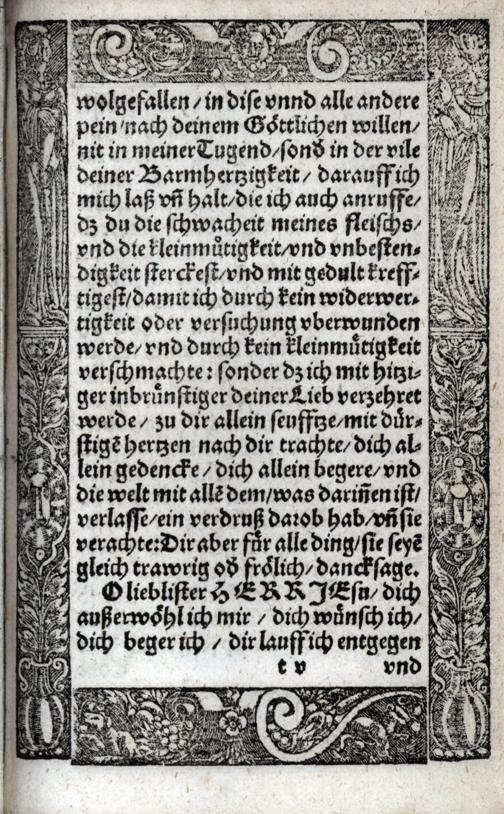 wolgefallen / in dise vnnd alle andere
pein nach deinem Göttlichen willen /
nit in meiner Tugend / sond̃ in der vile
deiner Barmhertzigkeit / darauff ich
mich laß vñ halt / die ich auch anruffe /
dz du die schwacheit meines fleischs /
vnd die kleinmůtigkeit / vnd vnbesten-
digkeit sterckest / vnd mit gedult kreff-
tigest / damit ich durch kein widerwer-
tigkeit oder versuchung vberwunden
werde / vnd durch kein kleinmůtigkeit
verschmachte : sonder dz ich mit hitzi-
ger inbrünstiger deiner Lieb verzehret
werde / zu dir allein seufftze / mit dür-
stigẽ hertzen nach dir trachte / dich al-
lein gedencke / dich allein begere / vnd
die welt mit allẽ dem / was dariñen ist /
verlasse / ein verdruß darob hab / vñ sie
verachte : Dir aber für alle ding / sie seyẽ
gleich trawrig od̃ frölich / dancksage.
O lieblister HERR JEsu / dich
außerwöhl ich mir / dich wünsch ich /
dich beger ich / dir lauff ich entgegen
t v vnd